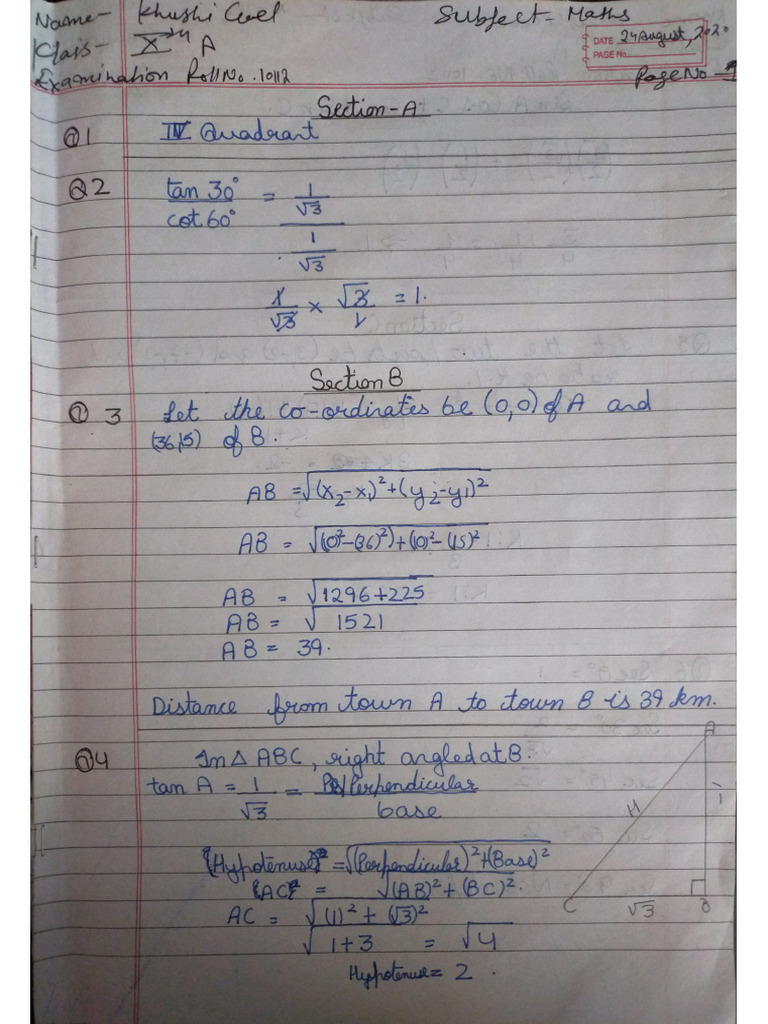 Name- Khushi Goel Subject- Maths
Class- Xth A DATE 24 August, 2020
PAGE No.
Examination Roll No. 10112 Page No - 1
Section-A
Q1 IV Quadrant
Q2 tan 30° / cot 60° = 1/√3 / 1/√3
1/√3 × √3/1 = 1.
Section B
Q 3 Let the co-ordinates be (0,0) of A and
(36,15) of B.
AB = √(x₂-x₁)²+(y₂-y₁)²
AB = √(0²-(36)²)+(0)²-(15)²
AB = √1296+225
AB = √1521
AB = 39.
Distance from town A to town B is 39 km.
Q4 In △ ABC, right angled at B.
tan A = 1/√3 = Perpendicular/base
(Hypotenuse)² = √(Perpendicular)²+(Base)²
(AC)² = √(AB)²+(BC)².
AC = √(1)²+(√3)²
√1+3 = √4
Hypotenuse = 2.
A
H
1
C √3 B